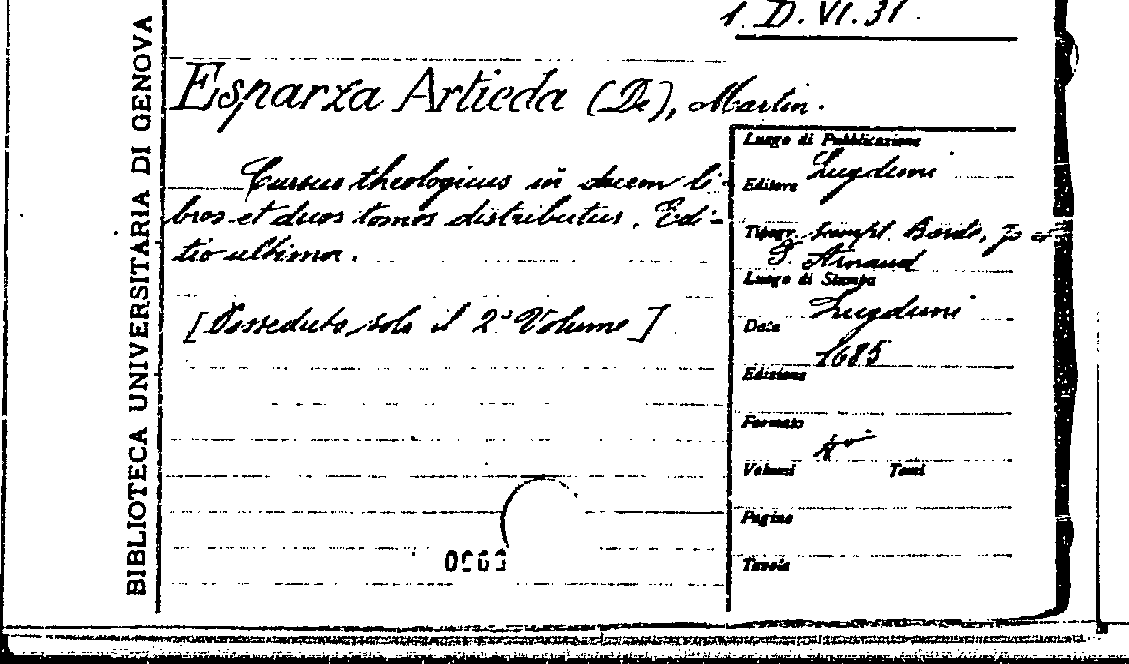 1. D. VI. 31.
BIBLIOTECA UNIVERSITARIA DI GENOVA
Esparza Artieda (De), Martin.
Cursus theologicus in decem li-
bros et duos tomos distributus. Edi-
tio ultima.
[Posseduto solo il 2° Volume]
Luogo di Pubblicazione
Lugduni
Editore
Tipogr. sumpt. Borde, Jo et
P. Arnaud
Luogo di Stampa
Lugduni
Data
1685
Edizione
Formato
4°
Volumi Tomi
Pagine
Tavole